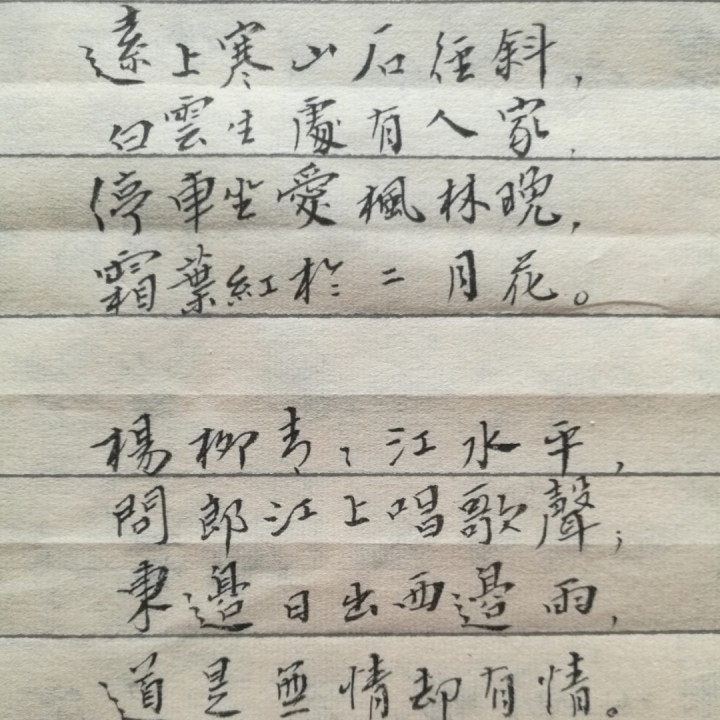 遠上寒山石徑斜,
白雲生處有人家,
停車坐愛楓林晚,
霜葉紅於二月花。
楊柳青〻江水平,
問郎江上唱歌聲;
東邊日出西邊雨,
道是無情却有情。